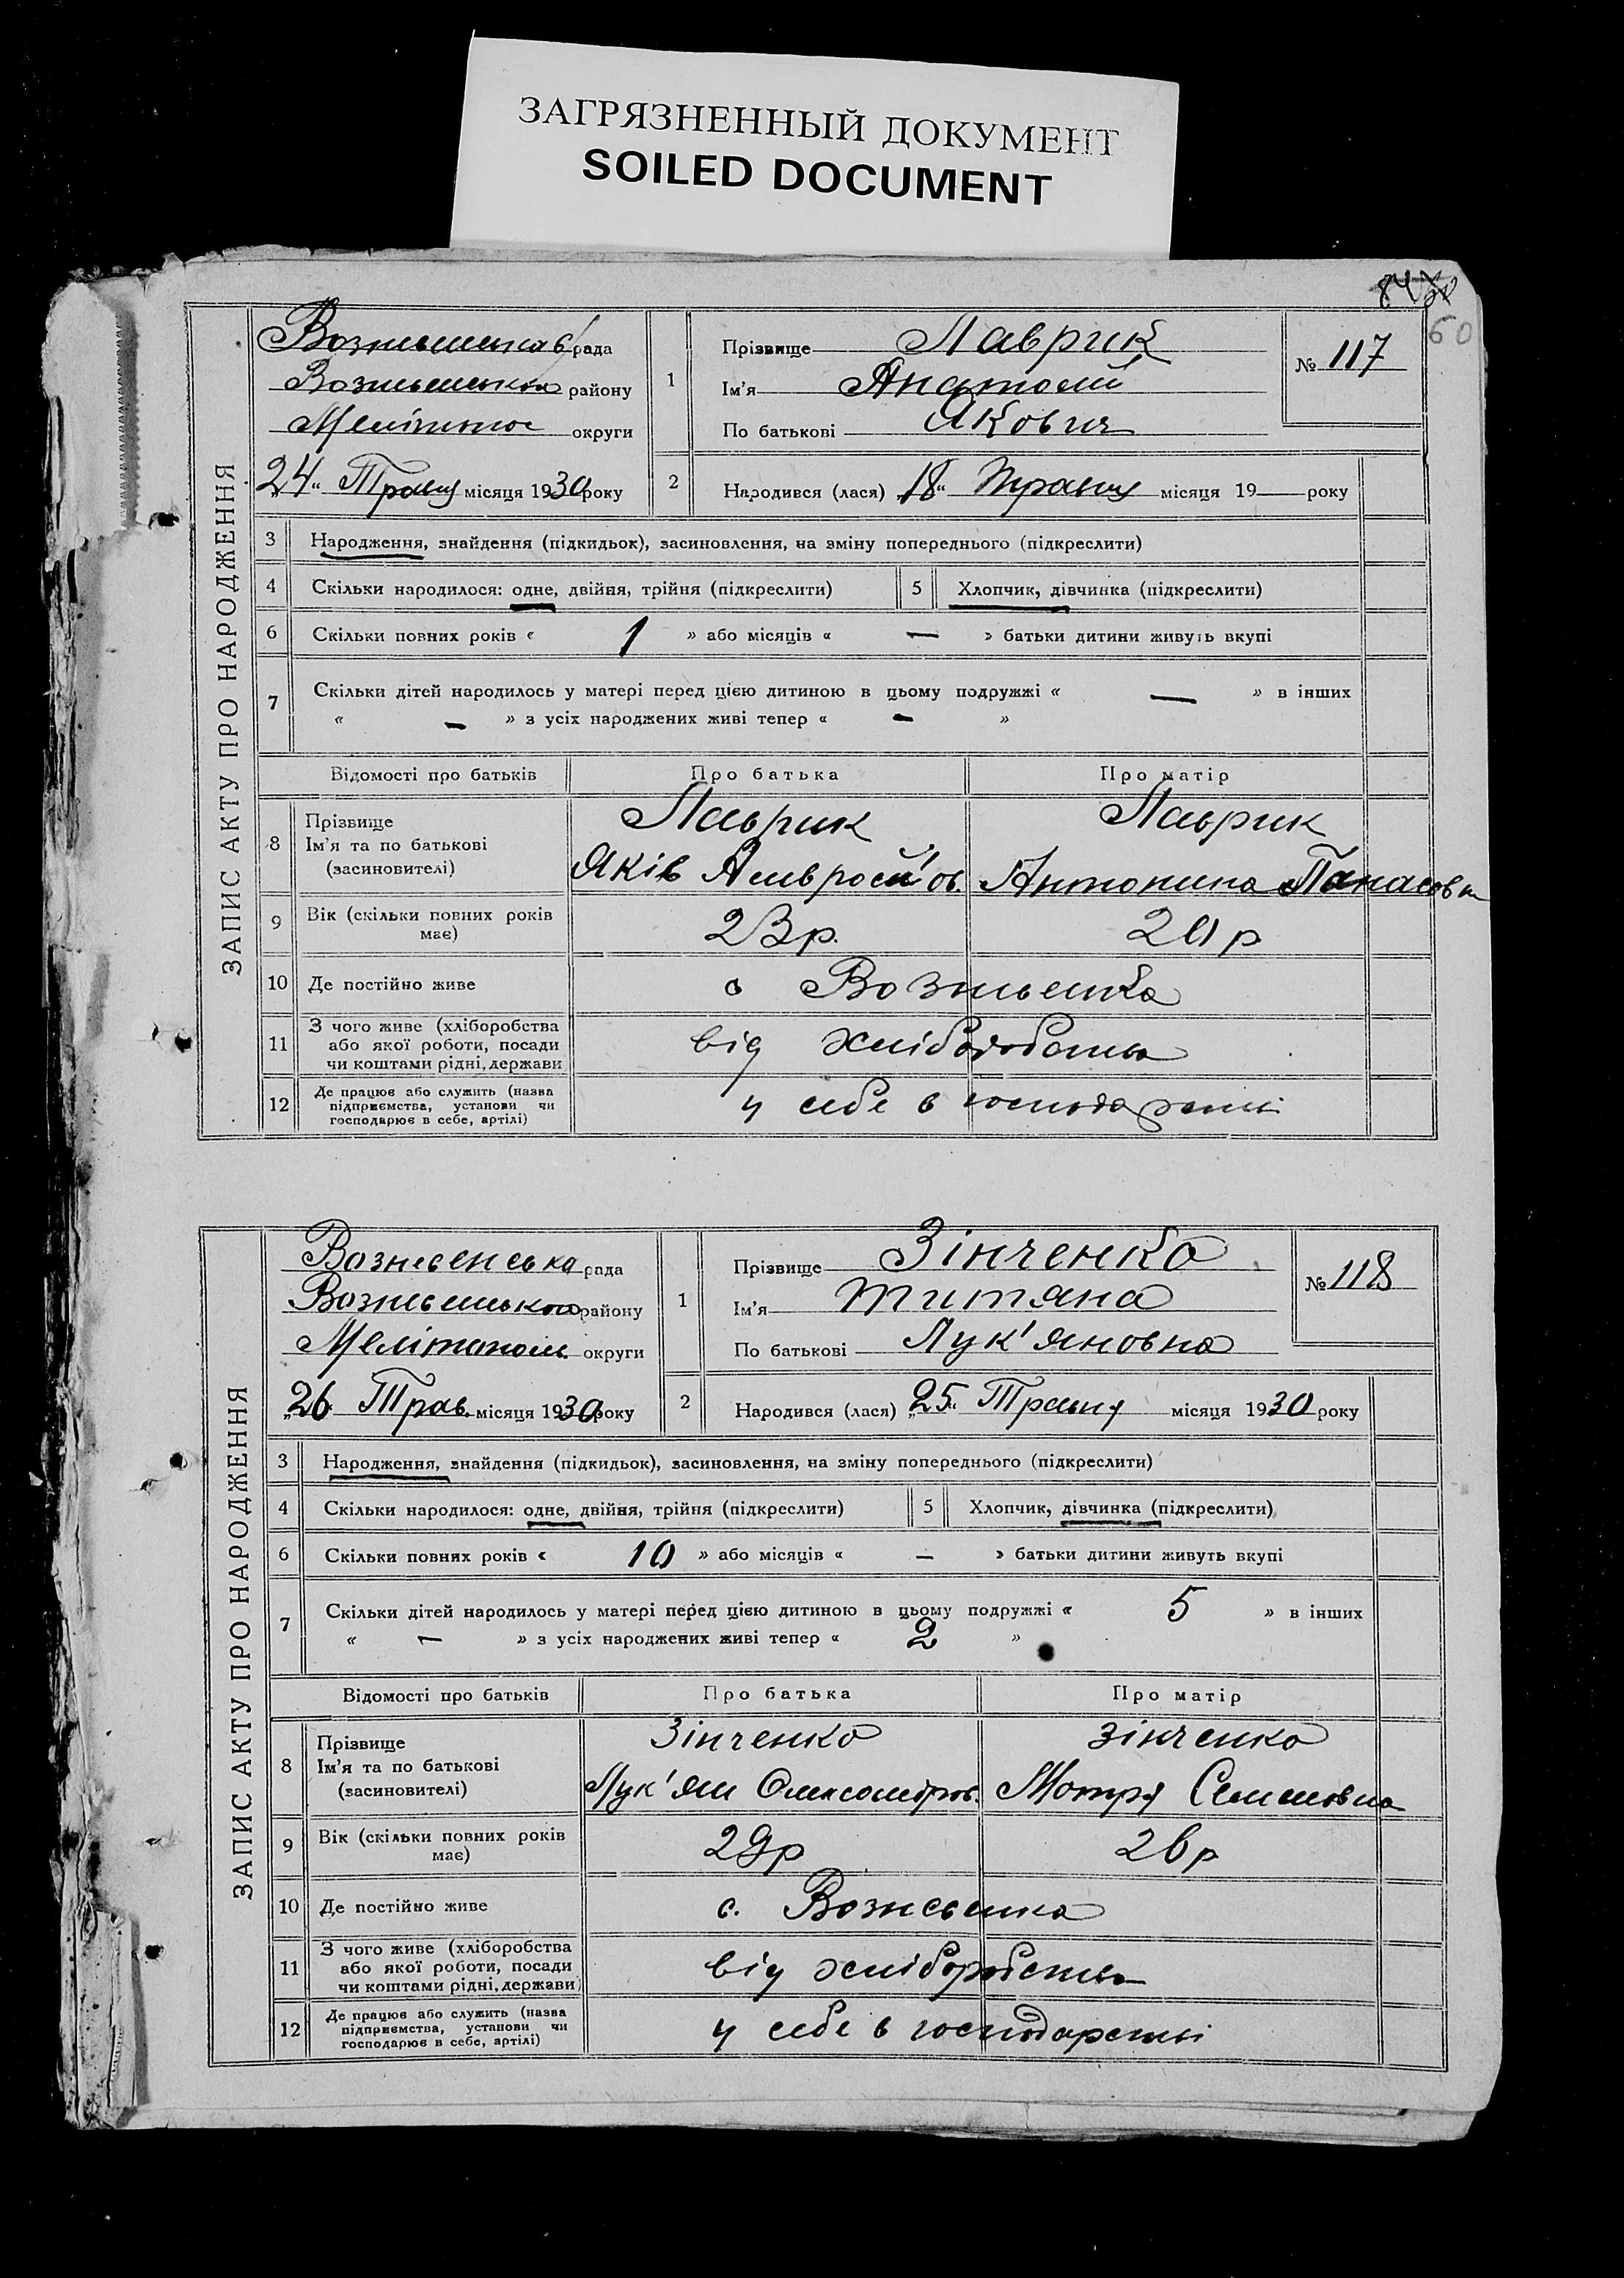 ЗАГРЯЗНЕННЫЙ ДОКУМЕНТ
SOILED DOCUMENT
60
ЗАПИС АКТУ ПРО НАРОДЖЕННЯ
рада
району
округи
24 Травня місяця 1930 року
1
Прізвище Лаврик
Ім'я Анатолій
По батькові Якович
№ 117
2
Народився (лася) „18“ Травня місяця 19 — року
3 Народження, знайдення (підкидьок), засиновлення, на зміну попереднього (підкреслити)
4 Скільки народилося: одне, двійня, трійня (підкреслити)
5 Хлопчик, дівчинка (підкреслити)
6 Скільки повних років « 1 » або місяців « — » батьки дитини живуть вкупі
7 Скільки дітей народилось у матері перед цією дитиною в цьому подружжі « — » в інших
« — » з усіх народжених живі тепер « — »
Відомості про батьків Про батька Про матір
8 Прізвище
Ім'я та по батькові
(засновителі)
Лаврик
Яків
Лаврик
Антонина Панасовн
9 Вік (скільки повних років
має)
23 р. р
10 Де постійно живе
с Вознесенка
11 З чого живе (хліборобства
або якої роботи, посади
чи коштами рідні, держави
від хліборобства
12 Де працює або служить (назва
підприємства, установи чи
господарює в себе, артілі)
у себе в господарстві
ЗАПИС АКТУ ПРО НАРОДЖЕННЯ
Вознесенська рада
Вознесенького району
Мелітополь. округи
„26 Трав. місяця 1930 року
1
Прізвище Зінченко
Ім'я Титяна
По батькові Лук'яновна
№ 118
2
Народився (лася) „25“ Травня місяця 1930 року
3 Народження, знайдення (підкидьок), засиновлення, на зміну попереднього (підкреслити)
4 Скільки народилося: одне, двійня, трійня (підкреслити)
5 Хлопчик, дівчинка (підкреслити)
6 Скільки повних років « 10 » або місяців « — » батьки дитини живуть вкупі
7 Скільки дітей народилось у матері перед цією дитиною в цьому подружжі « 5 » в інших
« — » з усіх народжених живі тепер « 2 »
Відомості про батьків Про батька Про матір
8 Прізвище
Ім'я та по батькові
(засиновителі)
Зінченко
Лук'ян Олександров.
Зінченко
Мотря Семеновна
9 Вік (скільки повних років
має)
29 р р
10 Де постійно живе
с. Вознесенка
11 З чого живе (хліборобства
або якої роботи, посади
чи коштами рідні, держави)
від хліборобства
12 Де працює або служить (назва
підприємства, установи чи
господарює в себе, артілі)
у себе в господарстві